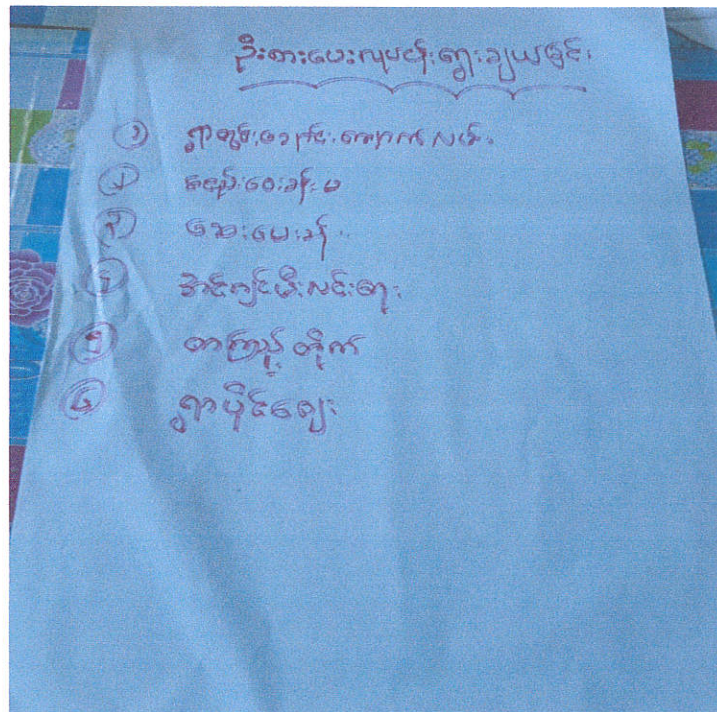 ဦးစားပေးလုပ်ငန်းရွေးချယ်ခြင်း
၁ ရွာတွင်းချောင်းကျောက်လမ်း
၂ စည်းဝေးခန်းမ
၃ ဆေးပေးခန်း
၄ အင်ဂျင်မီးလင်းရေး
၅ စာကြည့်တိုက်
၆ ရွာပိုင်ဈေး